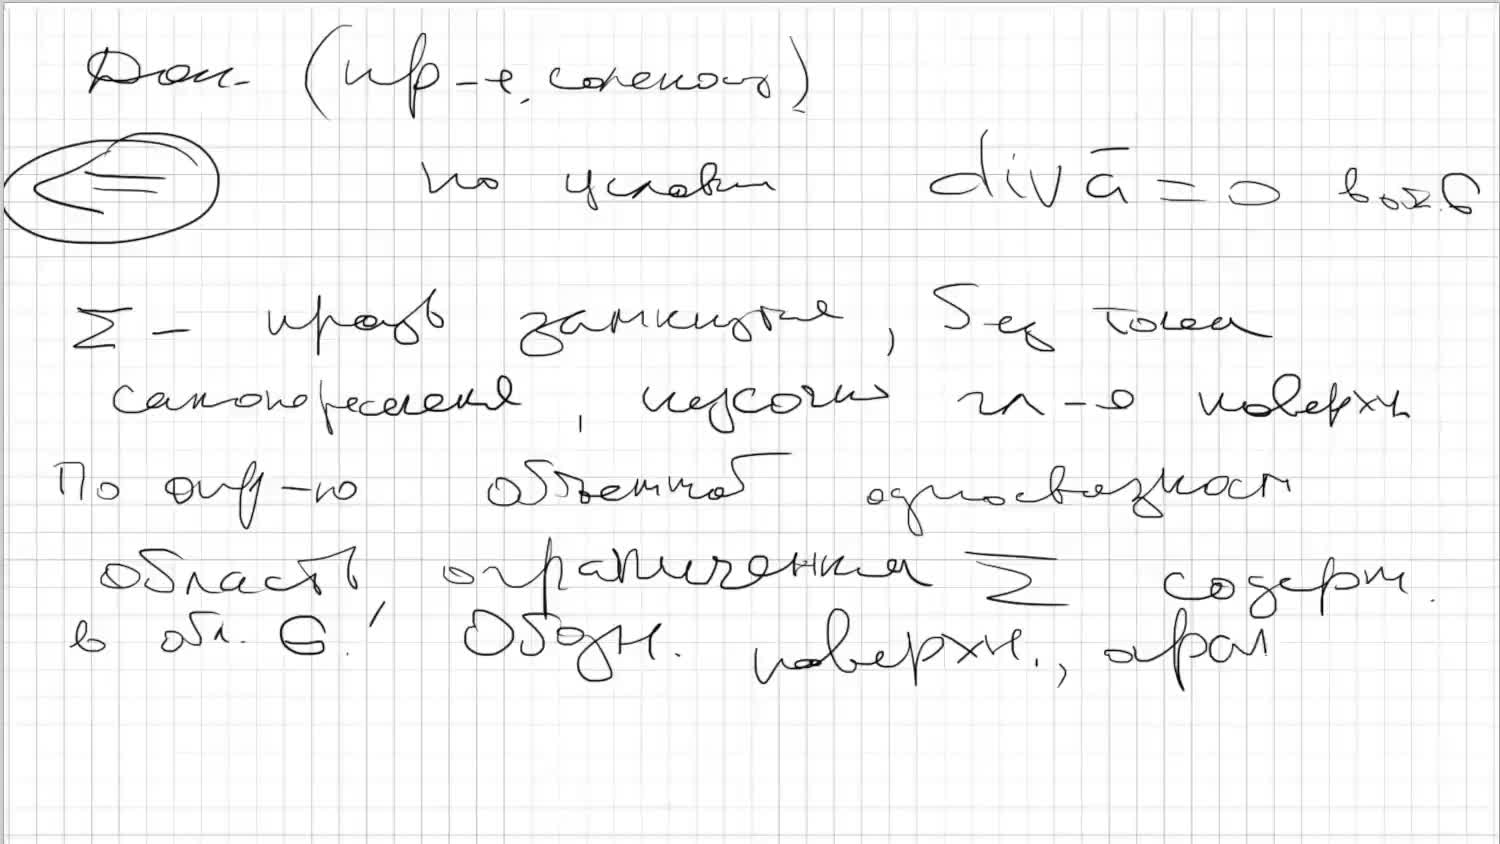 Док. (кр-е. соленоид)
⇐ по условию div ā = 0 в обл. G
Σ – произв замкнутые, без точек
самопересечения, кусочно гл-о поверхн
По опр-ю объемной односвязности
область, ограниченная Σ содерж.
в обл. G! Обозн. поверхн., огран